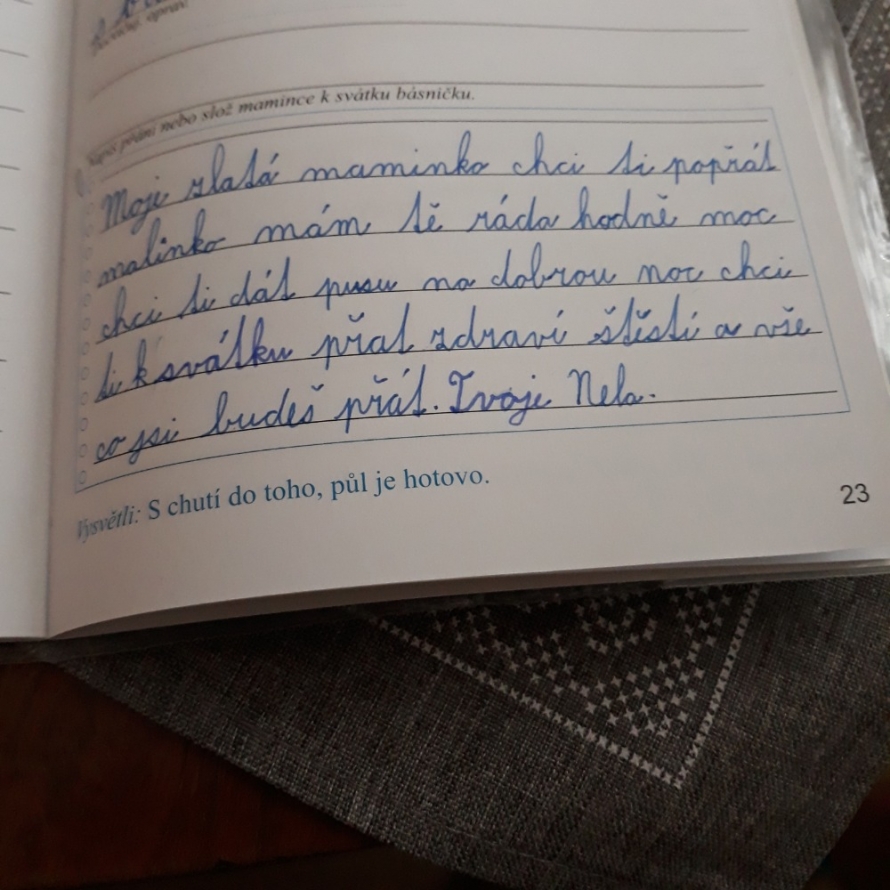 nebo slož mamince k svátku básničku.
Moje zlatá maminko chci ti popřát
malinko mám tě ráda hodně moc
chci ti dát pusu na dobrou noc chci
ti k svátku přat zdraví štěstí a vše
co jsi budeš přát. Tvoje Nela.
Vysvětli: S chutí do toho, půl je hotovo.
23